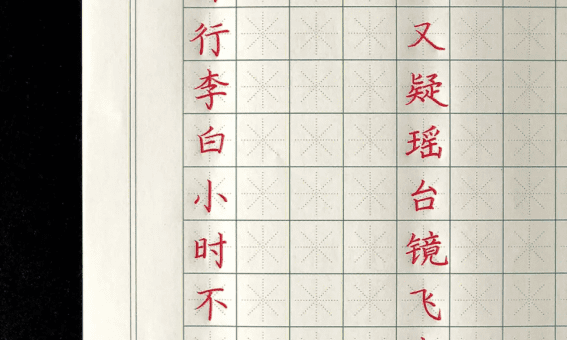 行李白小时不
又疑瑶台镜飞